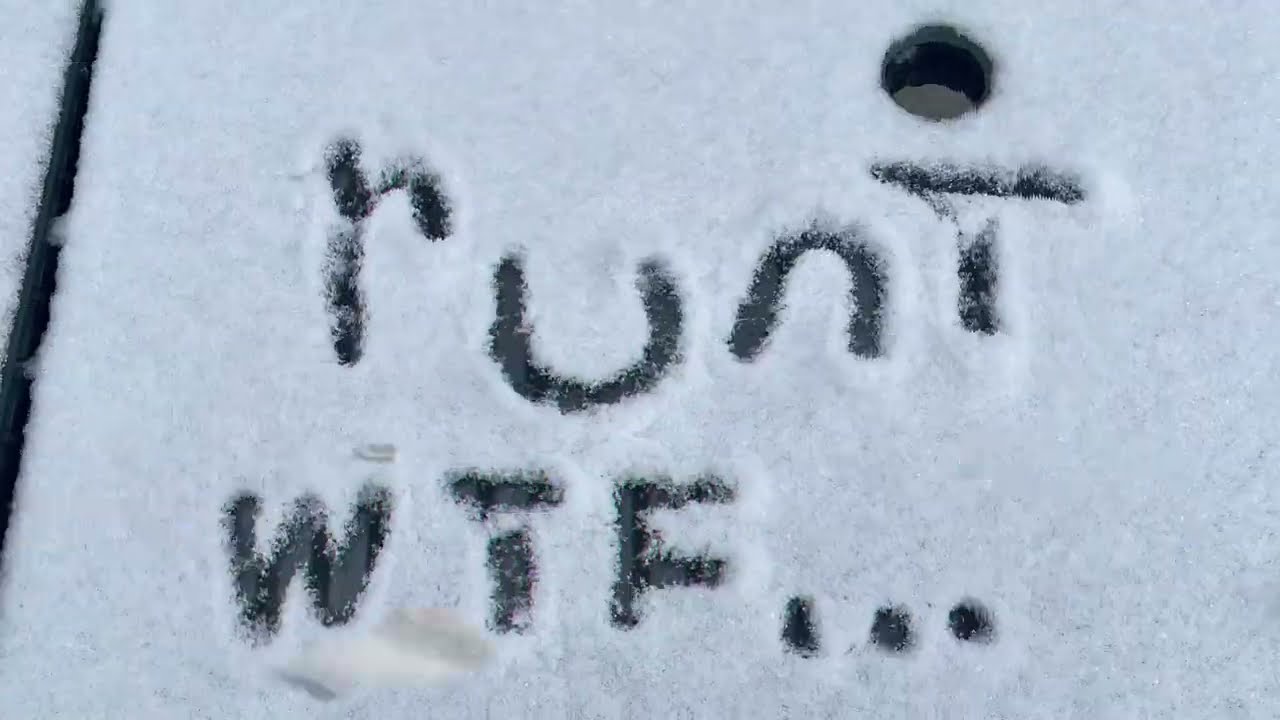 runT
WTF...